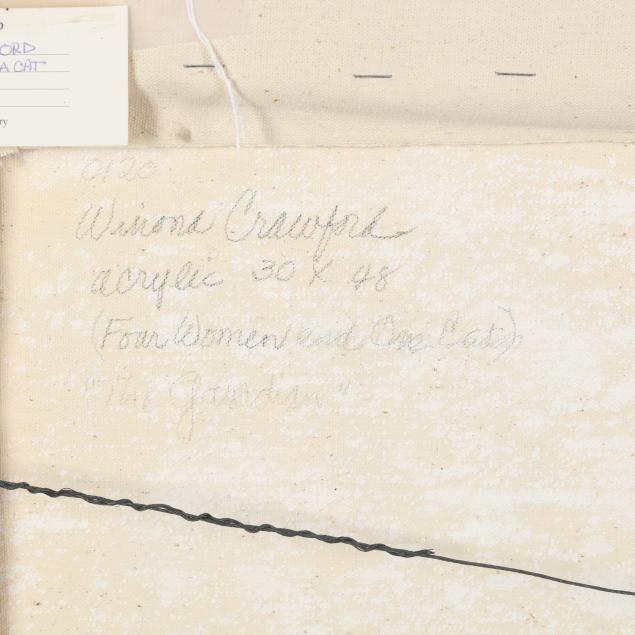 ORD
A CAT
ry
0120
Winona Crawford
acrylic 30 X 48
(Four Women and One Cat)
"The